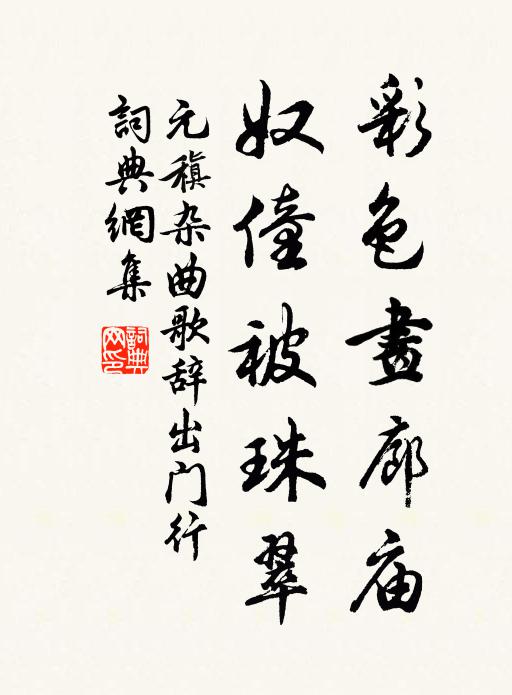 彩色畫廊庙
奴僮被珠翠
元稹杂曲歌辞出门行
詞典網集
詞典网印